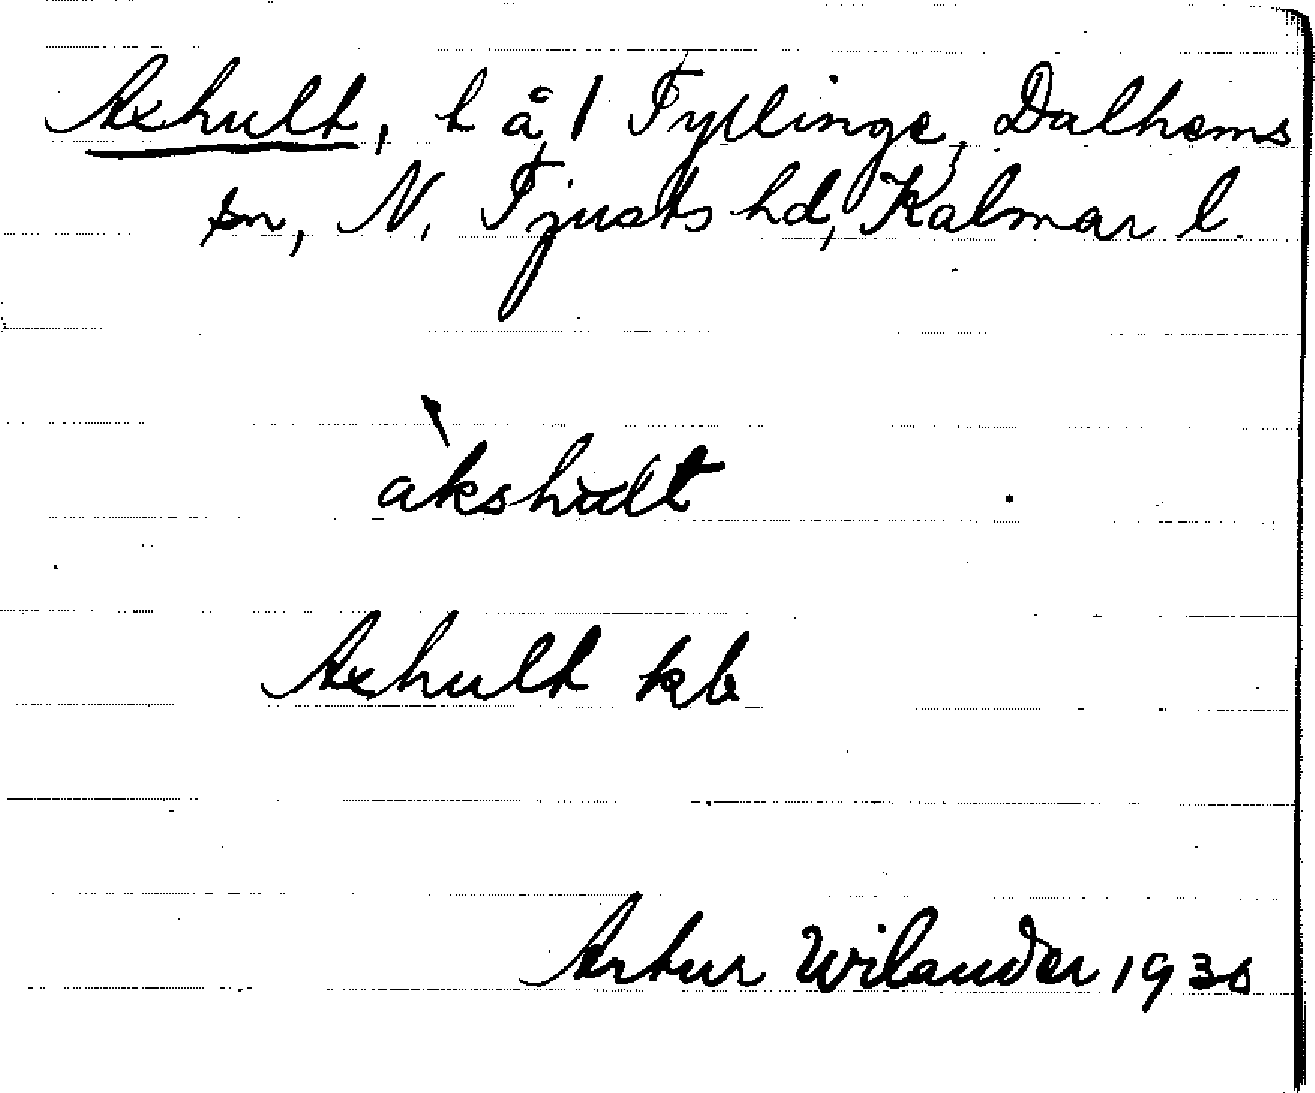 Axhult, t å 1 Fyllinge, Dalhems
sn, N. Tjusts hd, Kalmar l.
àkshult
Axhult kb
Artur Wilander 1936